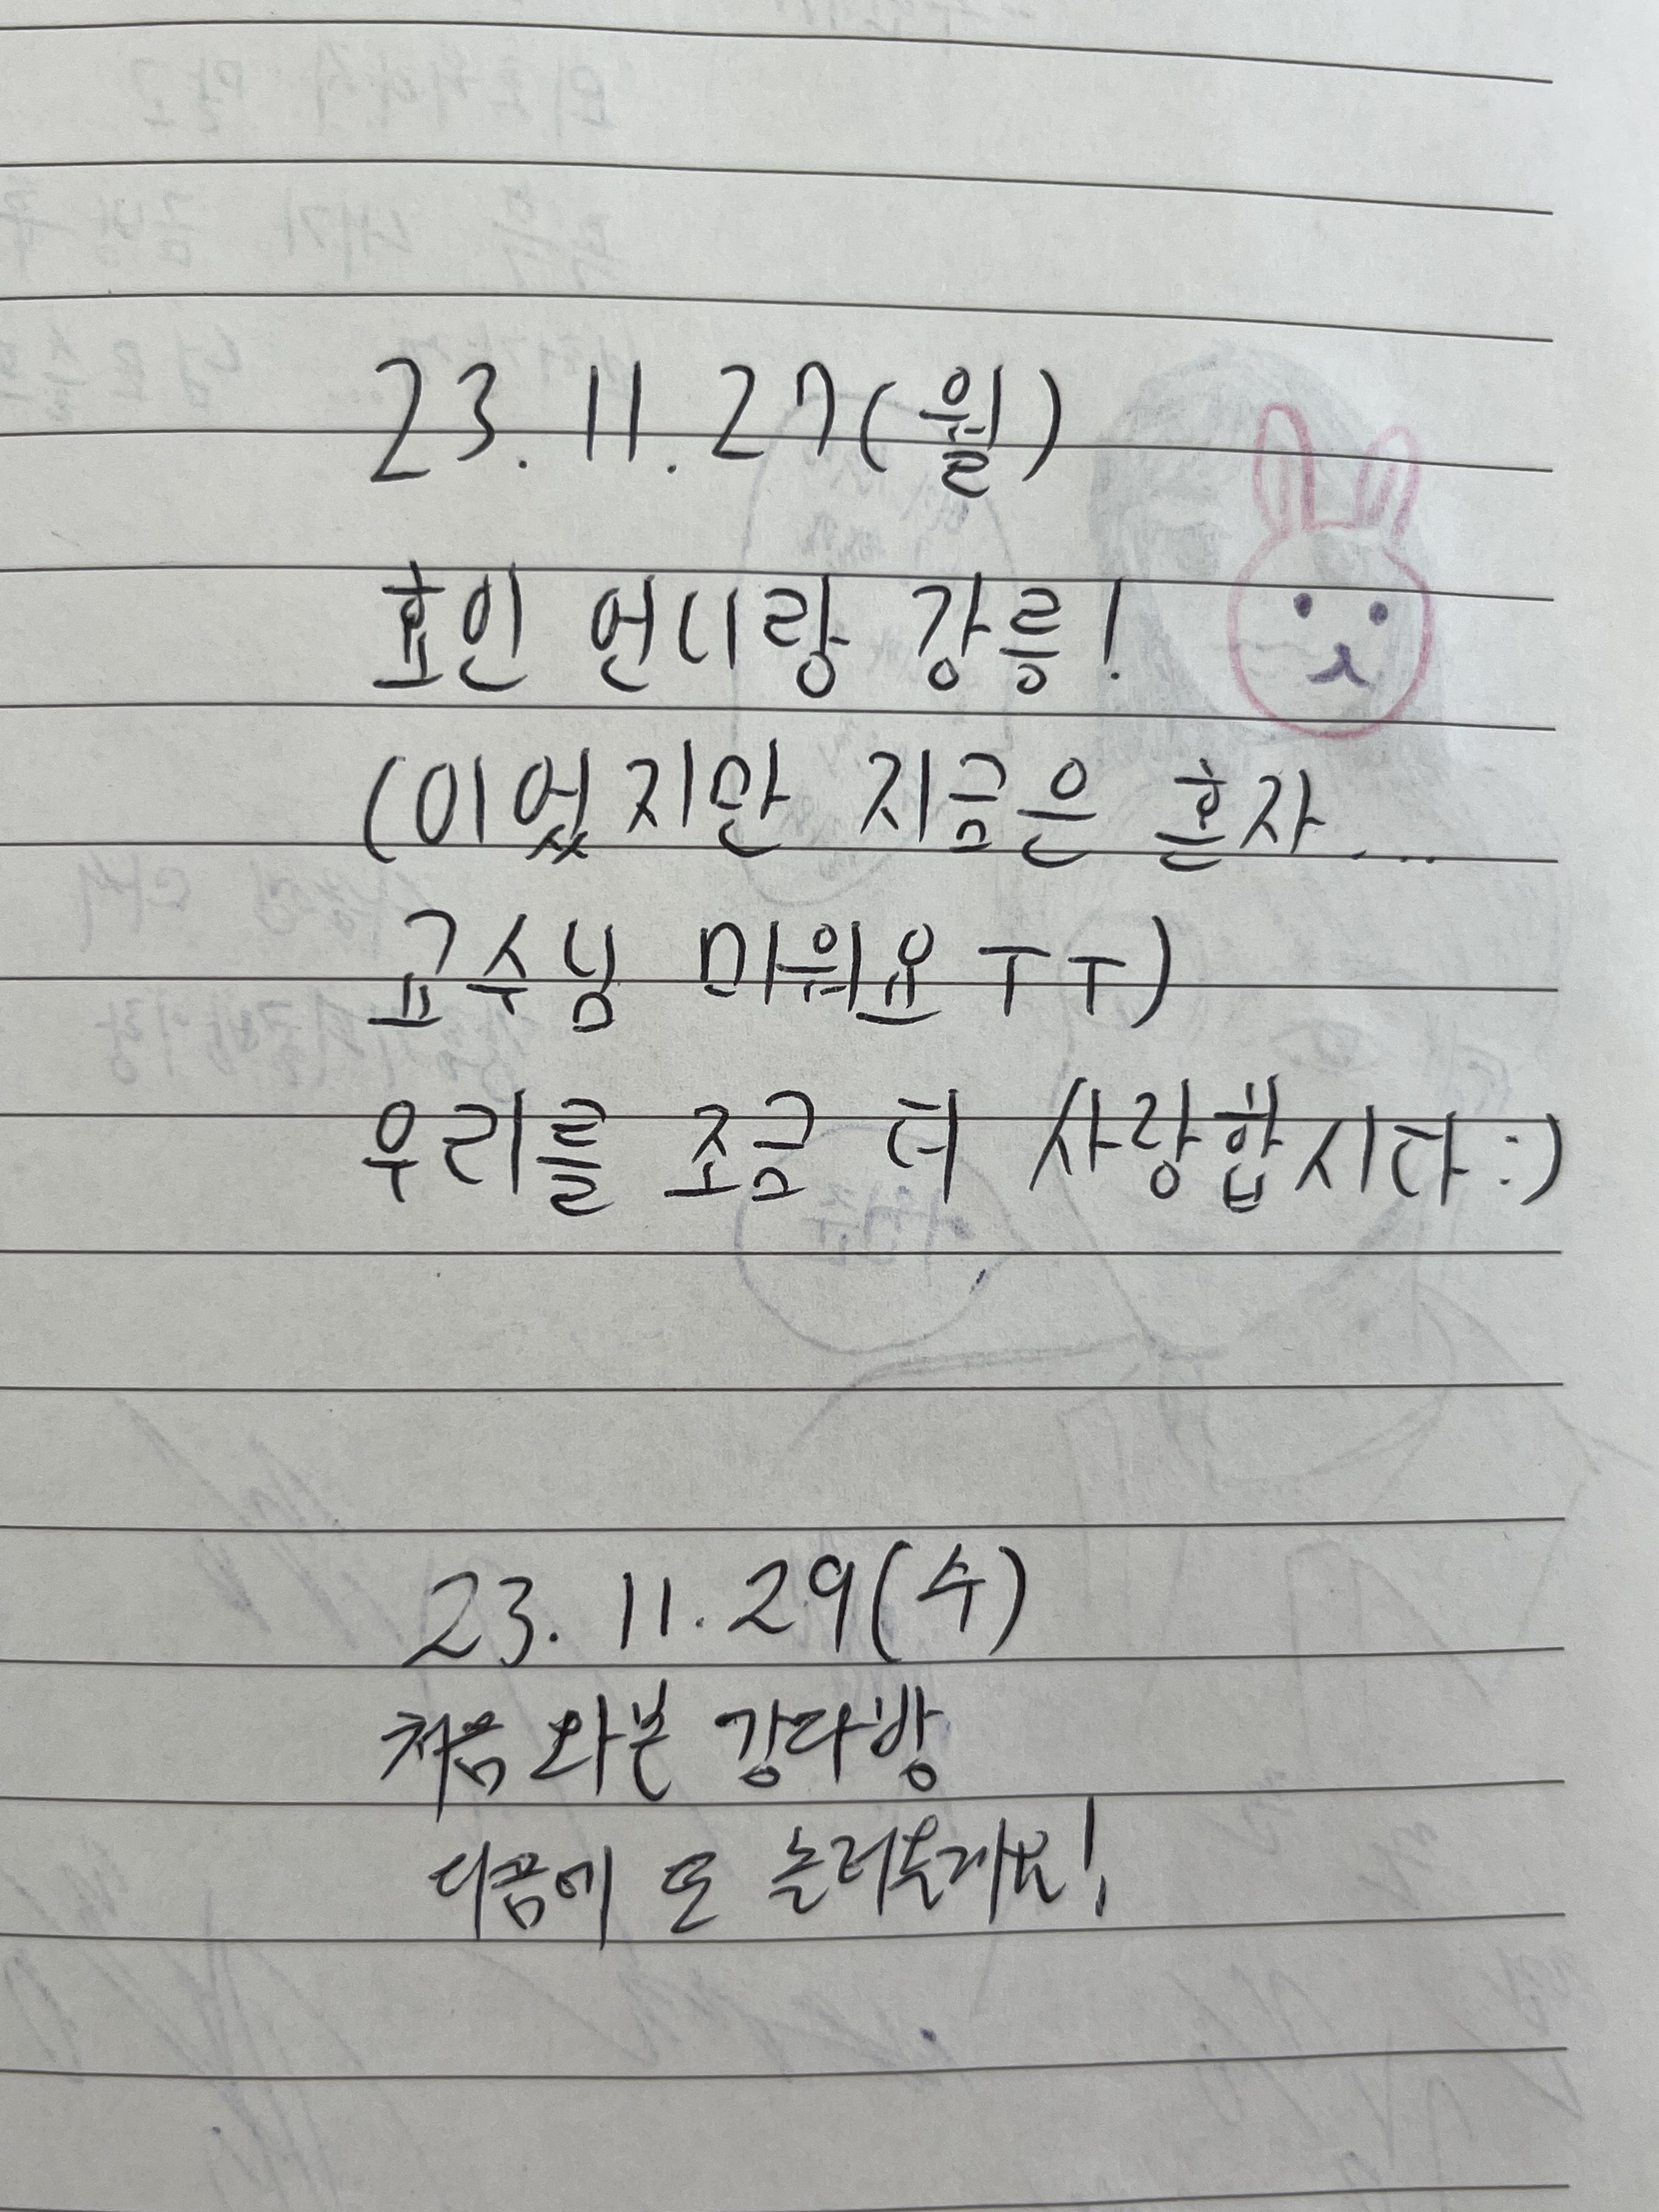 23.11.27(월)
효인 언니랑 강릉!
(이었지만 지금은 혼자....
교수님 미워요 ㅜㅜ)
우리를 조금 더 사랑합시다:)
23.11.29(수)
처음 와본 강다방
다음에 또 놀러올게요!